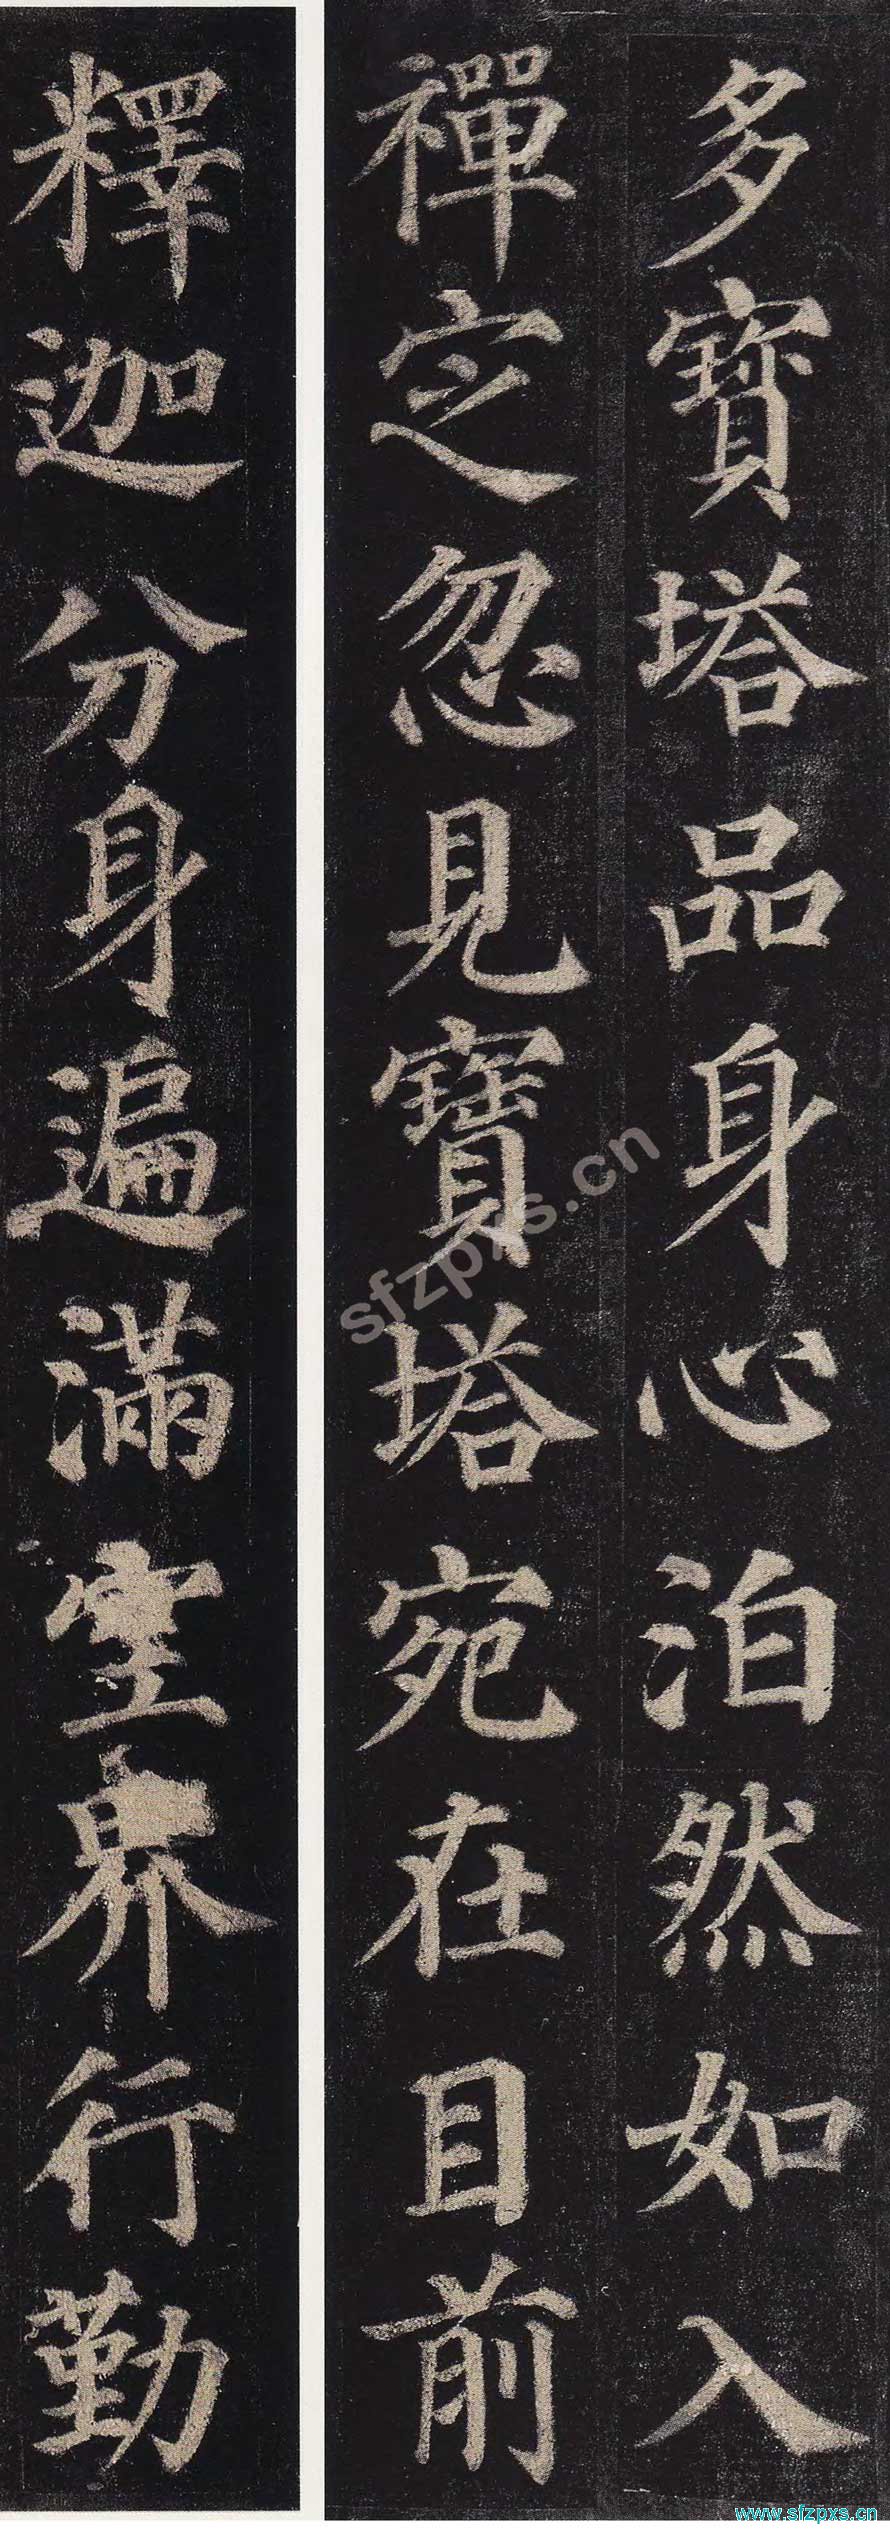 多寶塔品身心泊然如入
禪定忽見寶塔宛在目前
釋迦分身遍滿空界行勤
sfzpxs.cn
www.sfzpxs.cn